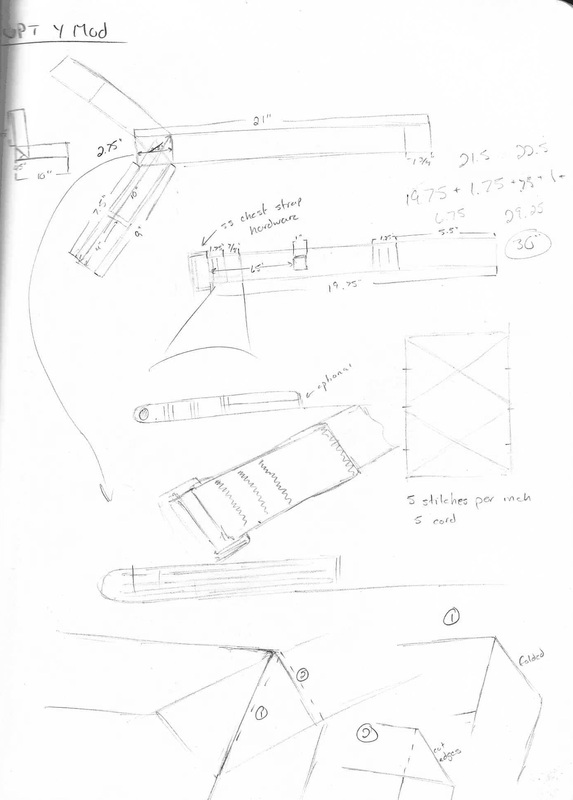 Y Mod
21"
2.75"
10"
1 3/4"
21.5 22.5
19.75 + 1.75 +
29.25
30"
chest strap
hardware
7.5"
10"
9"
1"
5.5"
6.5"
19.75"
optional
5 stitches per inch
5 cord
1
folded
2
1
2
cut
edges